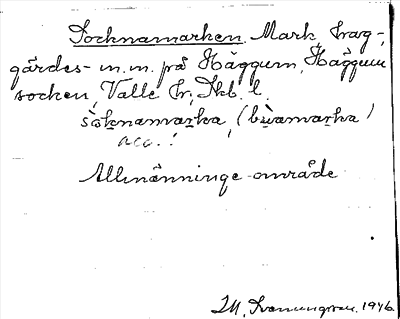 Socknamarken. Mark,
gärdes- m.m. på Häggum, Häggum
socken, Valle hr, Skb. l.
sòknamarka, (bùamarka)
acc.!
Allmänninge-område
1946.